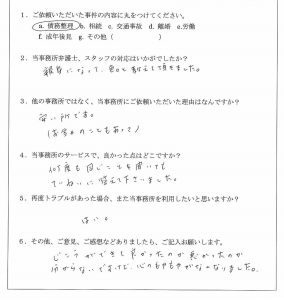 1．ご依頼いただいた事件の内容に丸をつけてください。
a. 債務整理 b. 相続 c. 交通事故 d. 離婚 e.労働
f. 成年後見 g. その他（ ）
2．当事務所弁護士、スタッフの対応はいかがでしたか？
親身になって、色々教えて頂きました。
3．他の事務所ではなく、当事務所にご依頼いただいた理由はなんですか？
近い所です。
のこともあって）
4．当事務所のサービスで、良かった点はどこですか？
何度も同じことを聞いても
ていねいに答えて下さいました。
5．再度トラブルがあった場合、また当事務所を利用したいと思いますか？
はい。
6．その他、ご意見、ご感想などありましたら、ご記入お願いします。
じこうができて良かったのか悪かったのか
分からないですけど、心のもやもやがなくなりました。